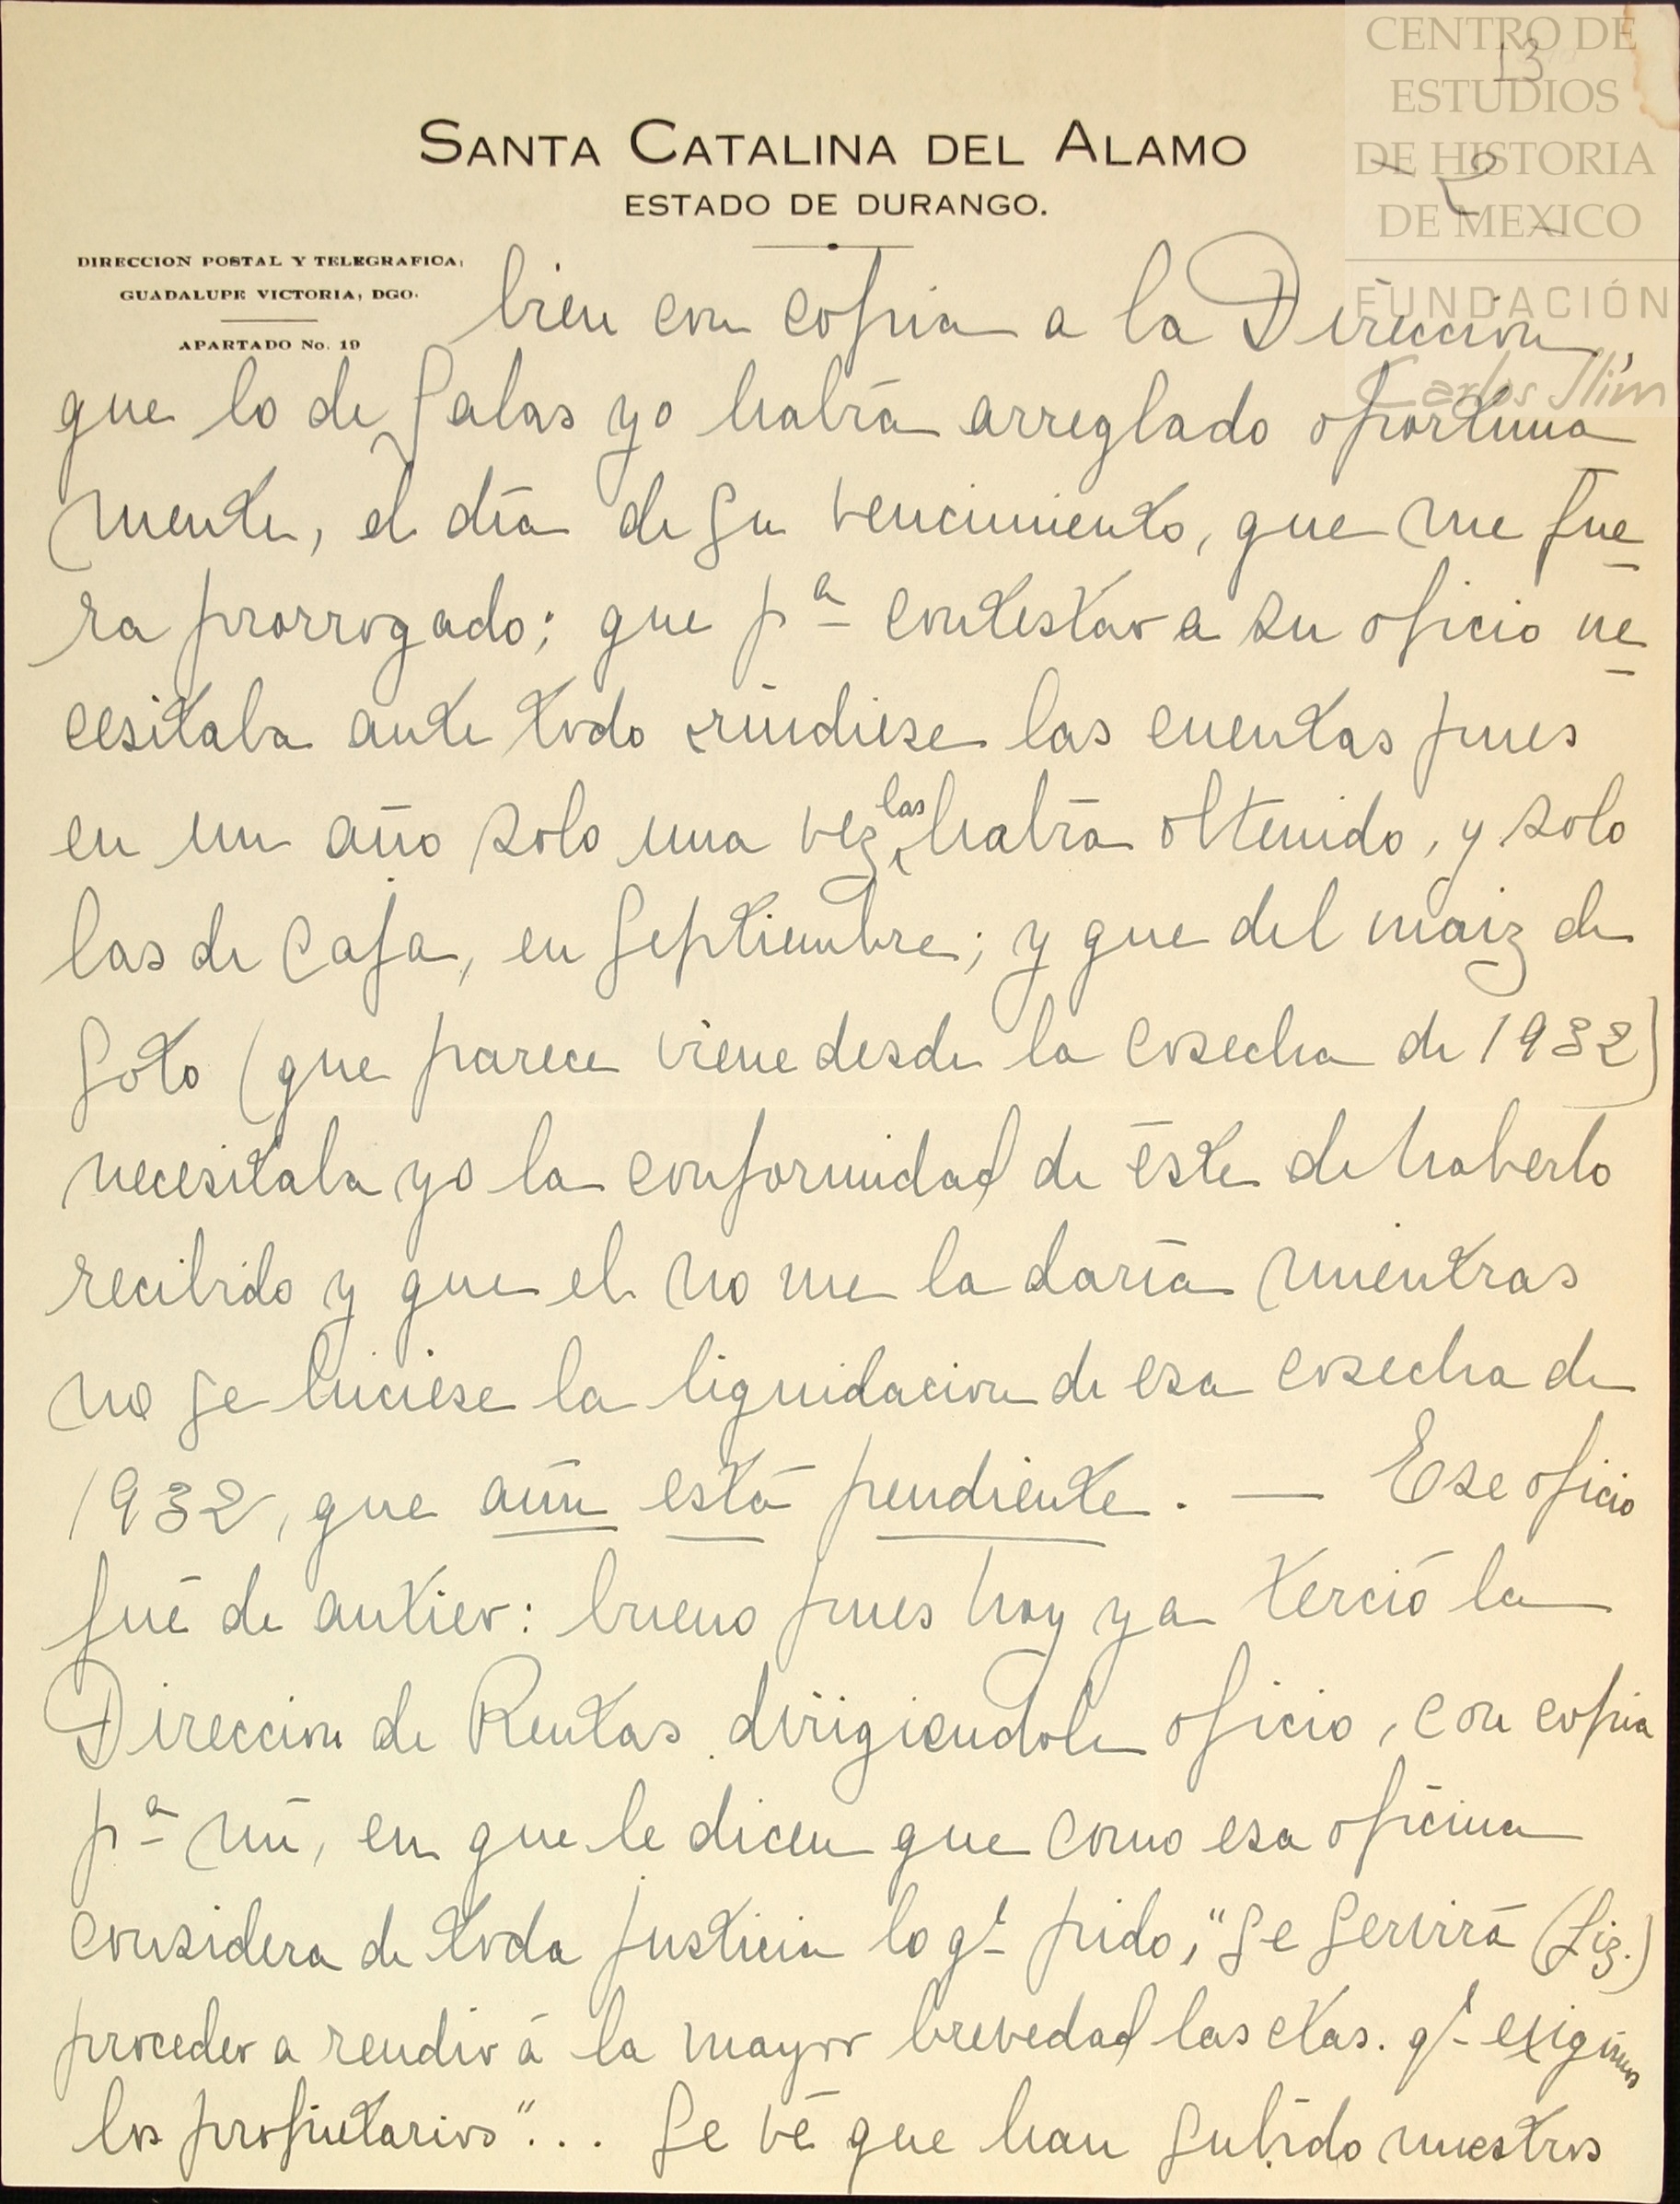 CENTRO DE
ESTUDIOS
DE HISTORIA
DE MEXICO
FUNDACIÓN
Carlos Slim
13
2
SANTA CATALINA DEL ALAMO
ESTADO DE DURANGO.
DIRECCION POSTAL Y TELEGRAFICA:
GUADALUPE VICTORIA, DGO.
APARTADO No. 19
bien con copia a la Direccion,
que lo de Salas yo habrá arreglado oportuna
mente, el día de su vencimiento, que me fue
ra prorrogado; que pª contestar a su oficio ne
cesitaba ante todo rindiese las cuentas pues
en un año solo una vez las había obtenido, y solo
las de Caja, en Septiembre; y que del maiz de
Soto (que parece viene desde la cosecha de 1932)
necesitaba yo la conformidad de éste de haberlo
recibido y que el no me la daría mientras
no se hiciese la liquidacion de esa cosecha de
1932, que aún está pendiente. — Ese oficio
fué de antier: bueno pues hoy ya terció la
Direccion de Rentas dirigiendole oficio, con copia
pª mí, en que le dicen que como esa oficina
considera de toda justicia lo qᵉ pido, "se servirá (Liz.)
proceder a rendir á la mayor brevedad las ctas. qᵉ exigimos
los propietarios"... Se vé que han subido nuestros